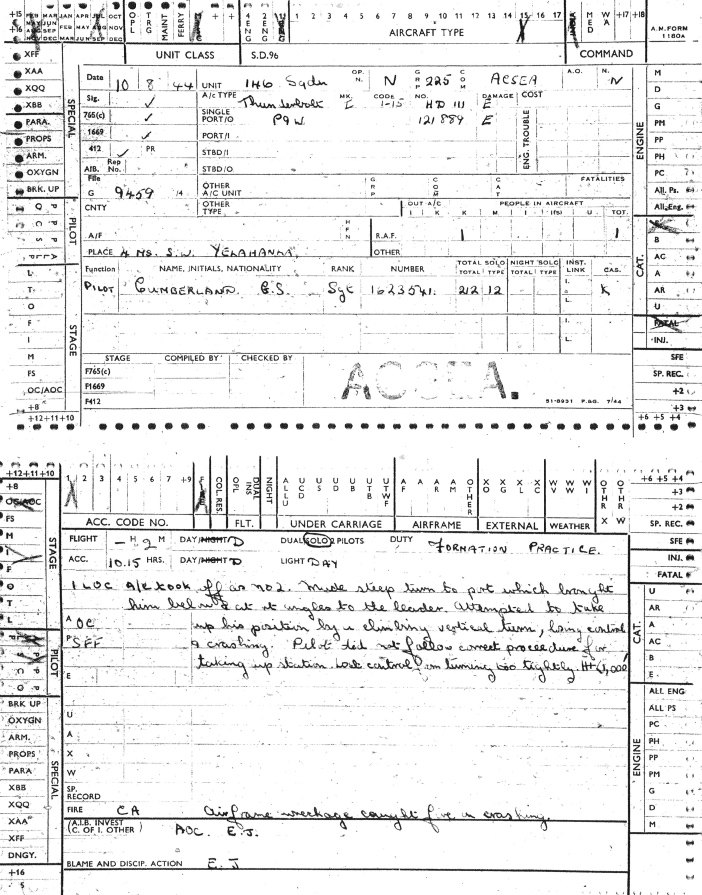 OPL TRG MAINT FERRY MISC + + 4 ENG 2 ENG 1 ENG AIRCRAFT TYPE 14 15 16 17 MED WA +17 +18 A.M. FORM 1180A
UNIT CLASS S.D.96 COMMAND
XFF
XAA
XQQ
XBB
PARA.
PROPS
ARM.
OXYGN
BRK. UP
SPECIAL
PILOT
L
T
O
F
I
M
FS
OC/AOC
+8
+12+11+10
STAGE
Date 10 8 44 UNIT 146 Sqdn OP. N. N GRP 225 COM ACSEA A.O. N. N
Sig. ✓ A/C TYPE Thunderbolt MK. I CODE 1-15 NO. HD 111 E DAMAGE COST
765(c) ✓ SINGLE PORT/O P&W 121889 E
1669 ✓ PORT/I ENG. TROUBLE
412 ✓ PR STBD/I
AIB. Rep No. STBD/O.
File G 9459 /4 OTHER A/C UNIT GRP COM CAT FATALITIES
CNTY OTHER TYPE OUT A/C PEOPLE IN AIRCRAFT
I K K M I I(fs) U TOT.
A/F HFN R.A.F. 1 1
PLACE 4 MS. S.W. YELAHANKA OTHER
Function NAME, INITIALS, NATIONALITY RANK NUMBER TOTAL SOLO NIGHT SOLO INST. LINK CAS.
TOTAL TYPE TOTAL TYPE
PILOT CUMBERLAND. G.S. Sgt 1623541. 212 12 I. L. K
I. L.
STAGE COMPILED BY CHECKED BY
F765(c)
F1669
F412
ACSEA.
51-8931 P.BG. 7/44
M
D
G
PM
PP
PH
PC
All. Ps.
All.Eng.
ENGINE
E
B
AC
A
AR
U
CAT.
FATAL
INJ.
SFE
SP. REC.
+2
+3
+6 +5 +4
+12+11+10
+8
OC/AOC
FS
M
I
F
O
T
L
STAGE
PILOT
BRK UP
OXYGN
ARM.
PROPS
PARA
XBB
XQQ
XAA
XFF
DNGY.
+16
SPECIAL
1 2 3 4 5 6 7 +9 COL. RES. OPL DUAL INS NIGHT ALLU UCD S DB UTB UTWF AF AR AM OTHER XO XG XL XC WV WW WI OTHR X OTHR W
ACC. CODE NO. FLT. UNDER CARRIAGE AIRFRAME EXTERNAL WEATHER
FLIGHT - H 2 M DAY/NIGHT D DUAL SOLO 2 PILOTS DUTY FORMATION PRACTICE.
ACC. 10.15 HRS. DAY/NIGHT D LIGHT DAY
1 LOC A/c took off as no 2. Made steep turn to port which brought
him behind & at rt angles to the leader. Attempted to take
A OC up his position by a climbing vertical turn, losing control
P SFF & crashing. Pilot did not follow correct procedure for
taking up station. Lost control on turning too tightly. Ht (1,000'
E
U
A
X
W
SP. RECORD
FIRE CA Airframe wreckage caught fire in crashing.
(A.I.B. INVEST (C. OF I. OTHER) AOC. E.J.
BLAME AND DISCIP. ACTION E.J
+6 +5 +4
+3
+2
SP. REC.
SFE
INJ.
FATAL
U
AR
A
AC
B
E
CAT.
ALL ENG
ALL PS
PC
PH
PP
PM
G
D
M
ENGINE